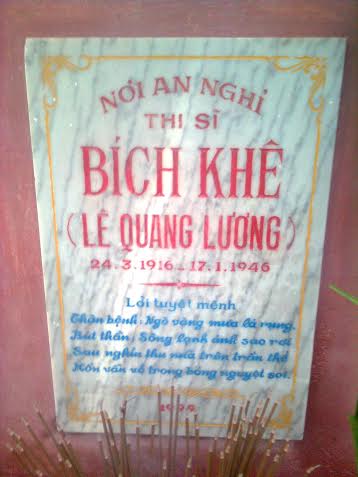 NƠI AN NGHỈ
THI SĨ
BÍCH KHÊ
(LÊ QUANG LƯƠNG)
24.3.1916 - 17.1.1946
Lời tuyệt mệnh
Thân bệnh: Ngô vàng mưa lá rụng.
Bút thần: Sông lạnh ánh sao rơi
Sau nghìn thu nữa trên trần thế
Hồn vẫn về trong bóng nguyệt soi.